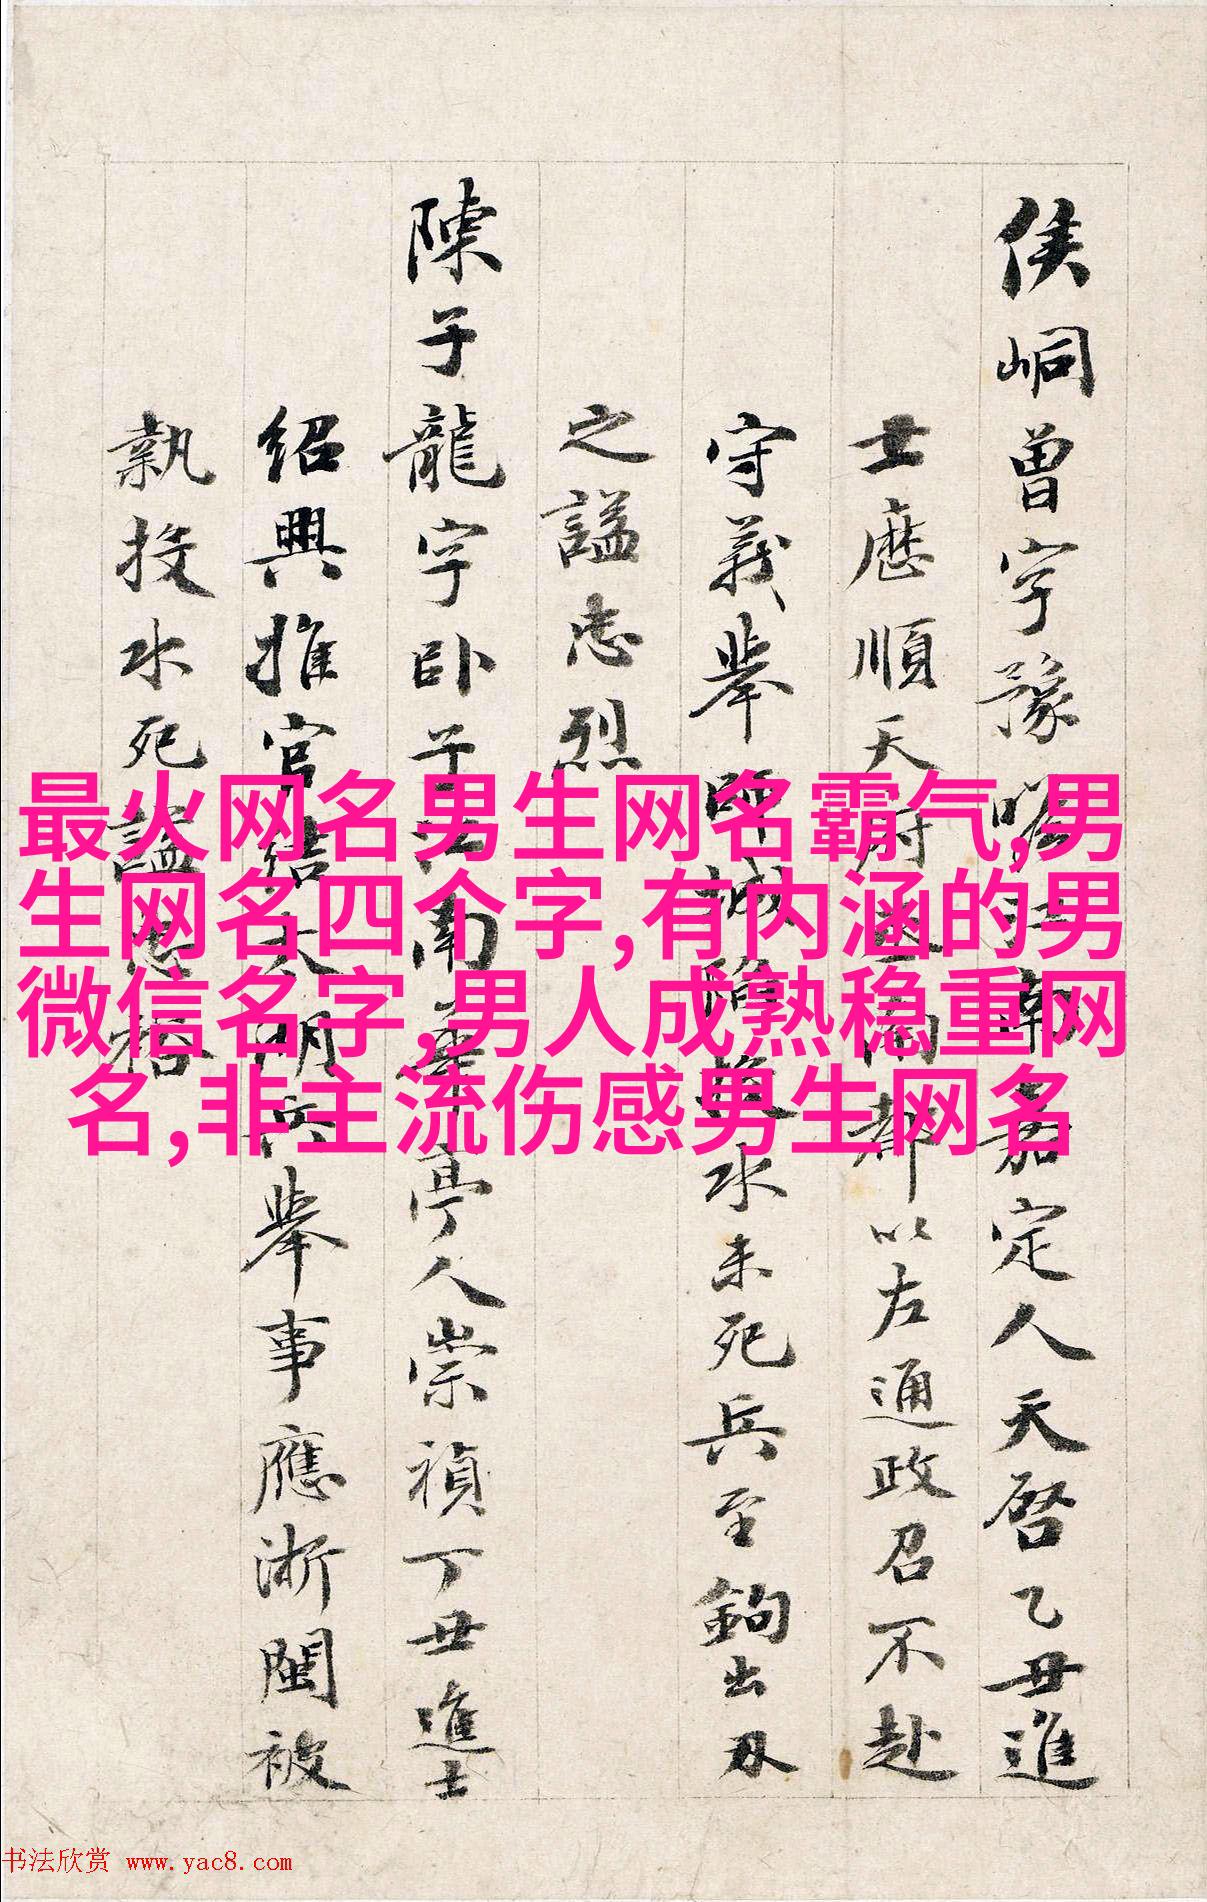 侯峒曾字豫瞻嘉定人天啓乙丑進
士歷順天府丞南都以左通政召不赴
守義舉師城陷投水未死兵至鉤出刃
之謚忠烈
陳子龍字卧子華亭人崇禎丁丑進士
紹興推官結明兵舉事應浙閩被
執投水死謚忠裕
最火网名男生网名霸气,男
生网名四个字,有内涵的男
微信名字,男人成熟稳重网
名,非主流伤感男生网名
书法欣赏 www.yac8.com